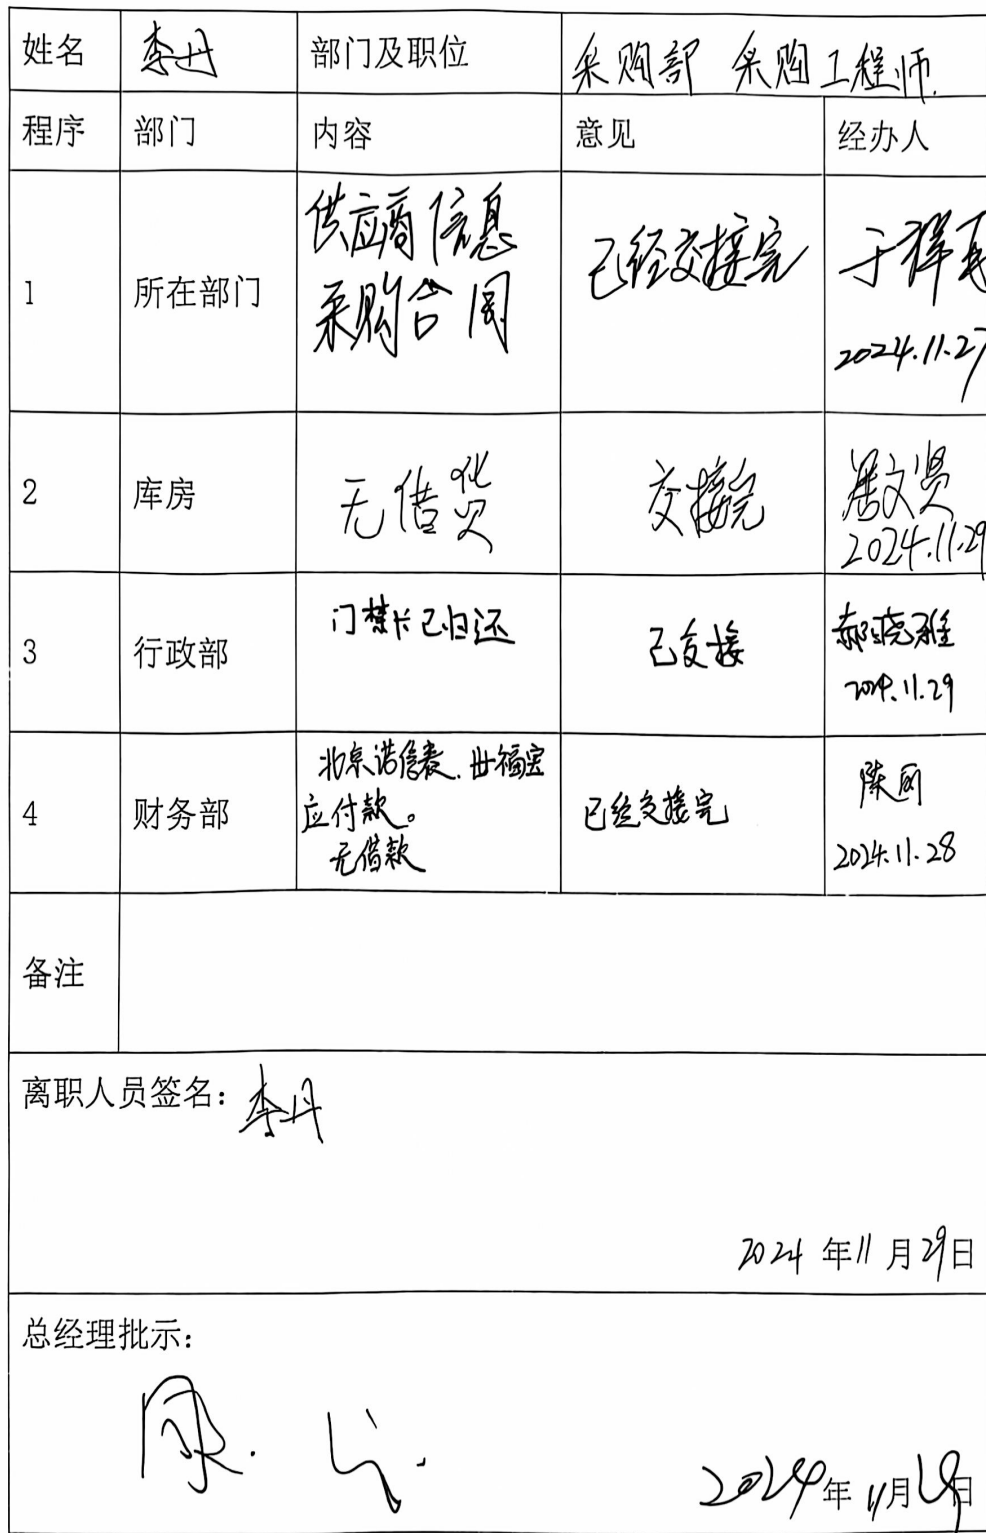 姓名 李丹 部门及职位 采购部 采购工程师
程序 部门 内容 意见 经办人
1 所在部门 供应商信息 已经交接完 于祥
采购合同
2024.11.27
2 库房 无借货 交接完 文贤
2024.11.29
3 行政部 门禁卡已归还 已交接 郝晓雅
2024.11.29
4 财务部 北京诺信泰、世福宝 已经交接完 陈丽
应付款。
无借款
2024.11.28
备注
离职人员签名：李丹
2024 年 11 月 29 日
总经理批示：
2024 年 11 月 29 日